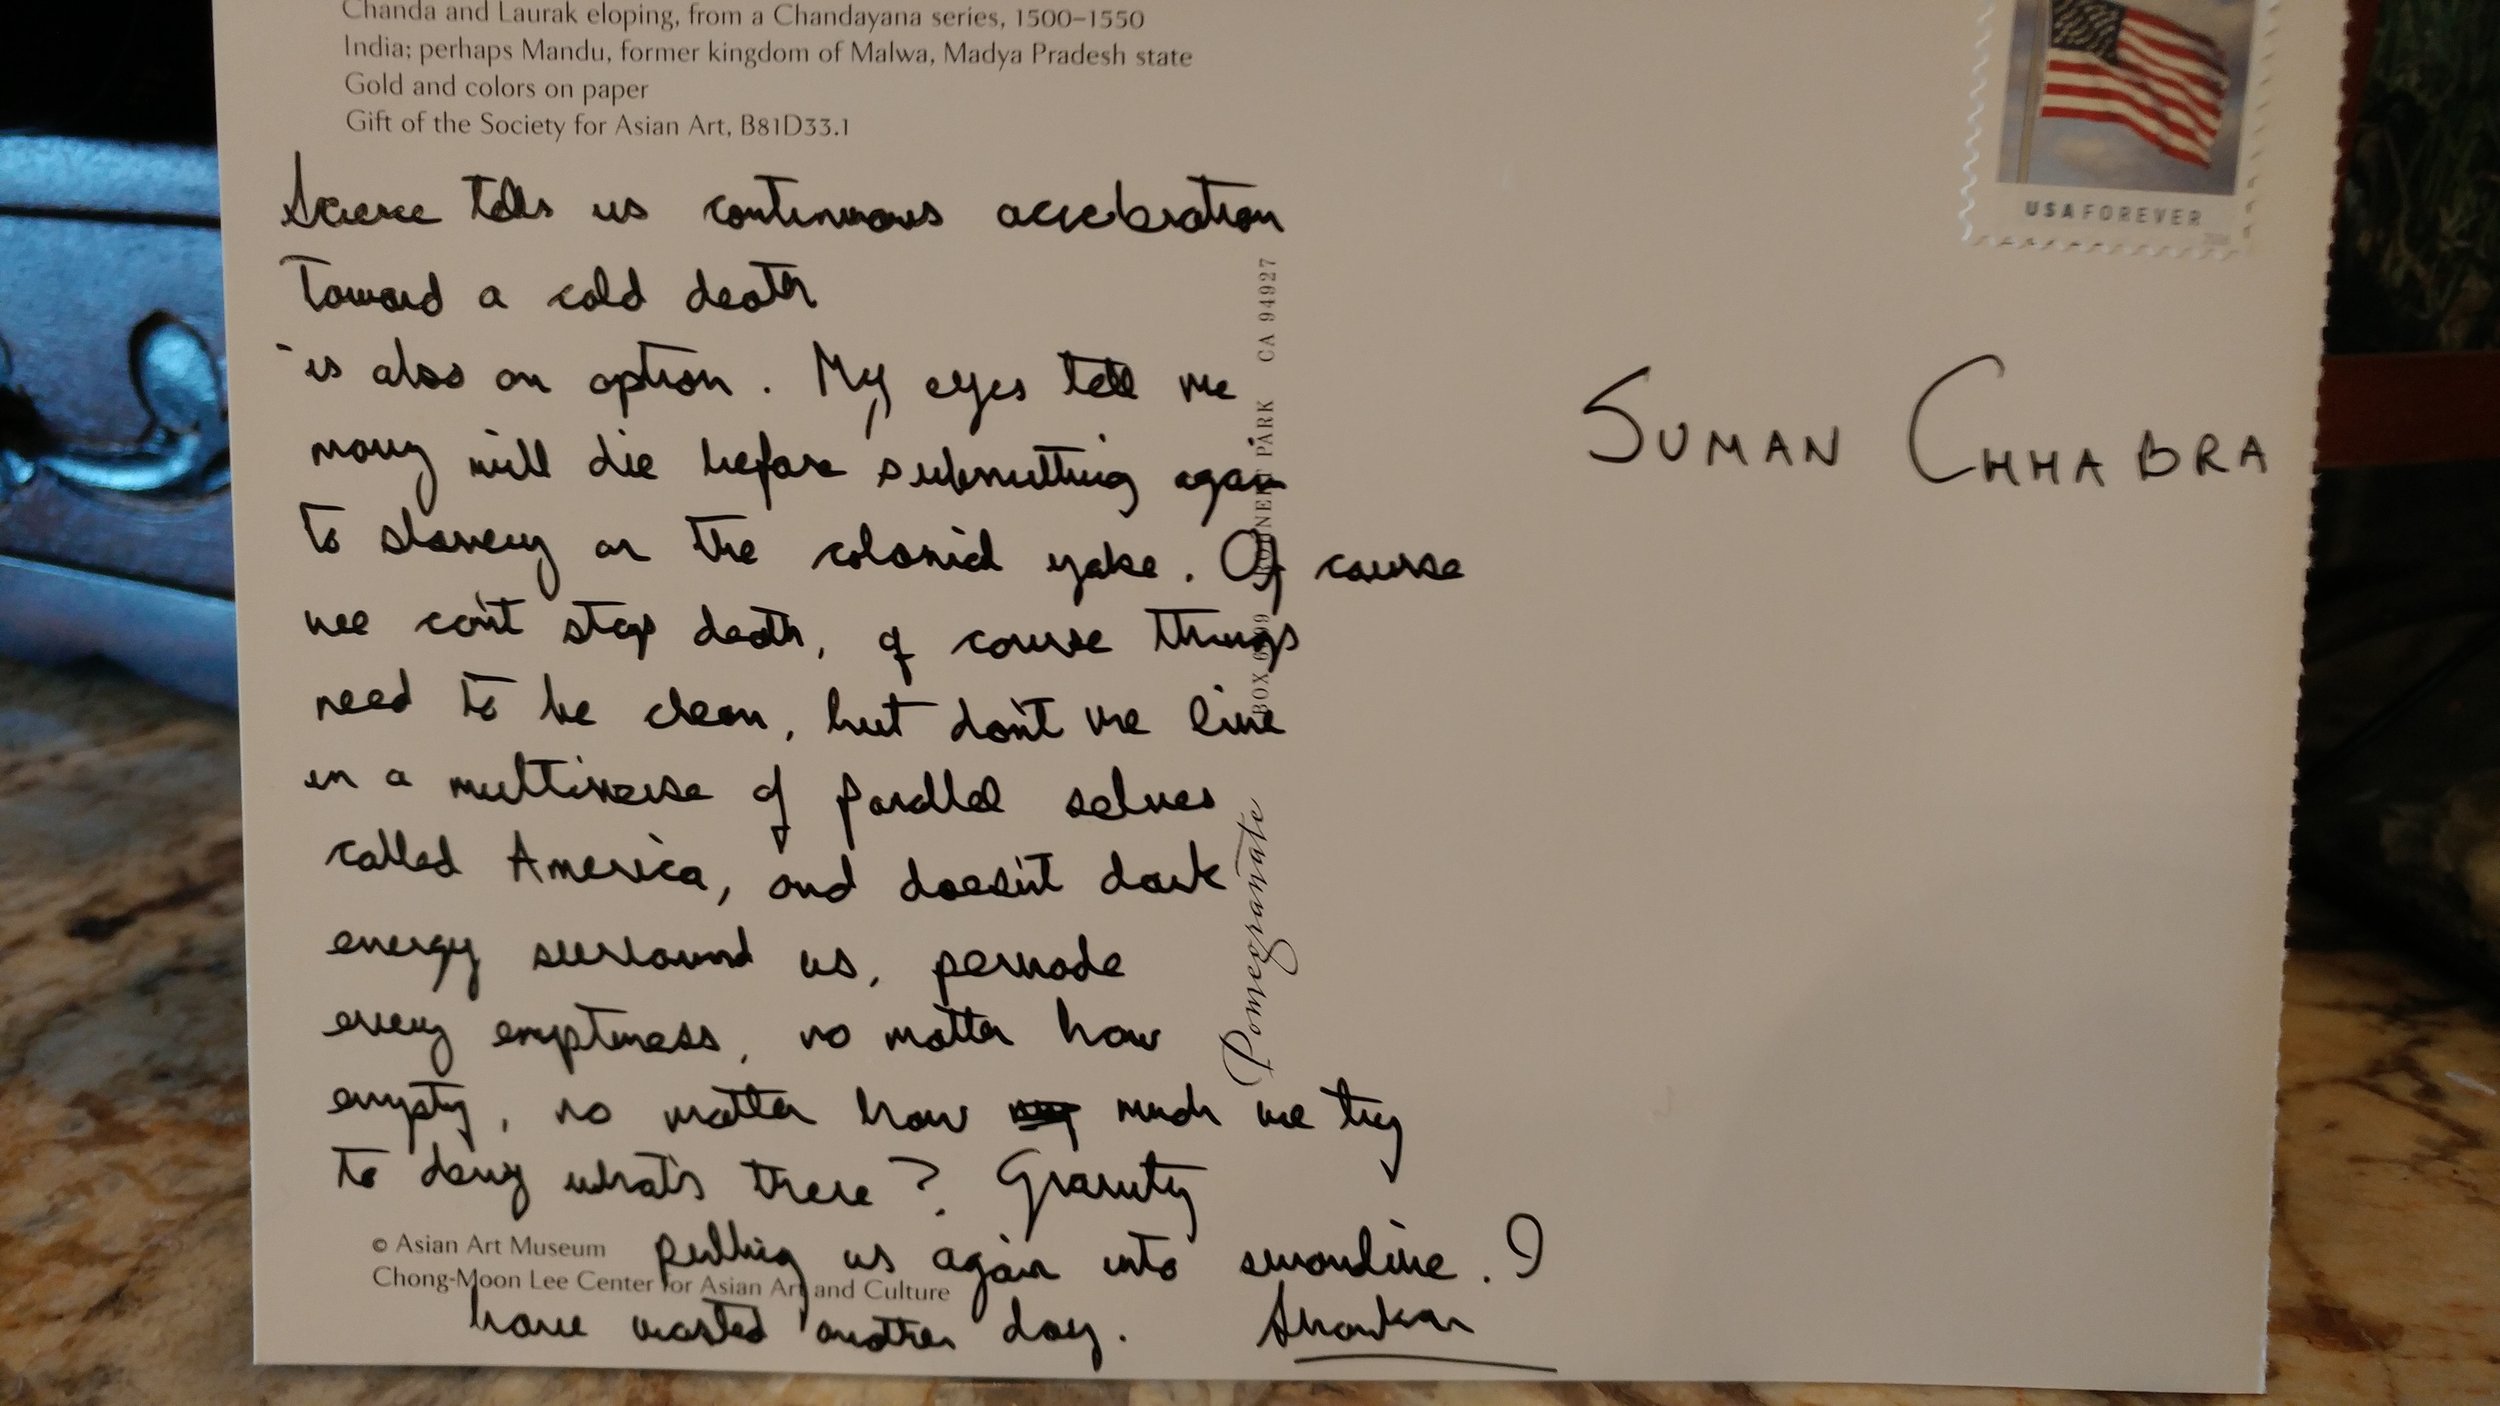 Chanda and Laurak eloping, from a Chandayana series, 1500–1550
India; perhaps Mandu, former kingdom of Malwa, Madya Pradesh state
Gold and colors on paper
Gift of the Society for Asian Art, B81D33.1
USA FOREVER
Science tells us continuous acceleration
toward a cold death
is also an option. My eyes tell me
many will die before submitting again
to slavery or the colonial yoke. Of course
we can't stop death, of course things
need to be clean, but don't we live
in a multiverse of parallel selves
called America, and doesn't dark
energy surround us, pervade
every emptiness, no matter how
empty, no matter how much we try
to deny what's there? Gravity
pulling us again into swandive. I
have wasted another day. Shankar
SUMAN CHHABRA
© Asian Art Museum
Chong-Moon Lee Center for Asian Art and Culture
Pomegranate
BOX PARK CA 94927